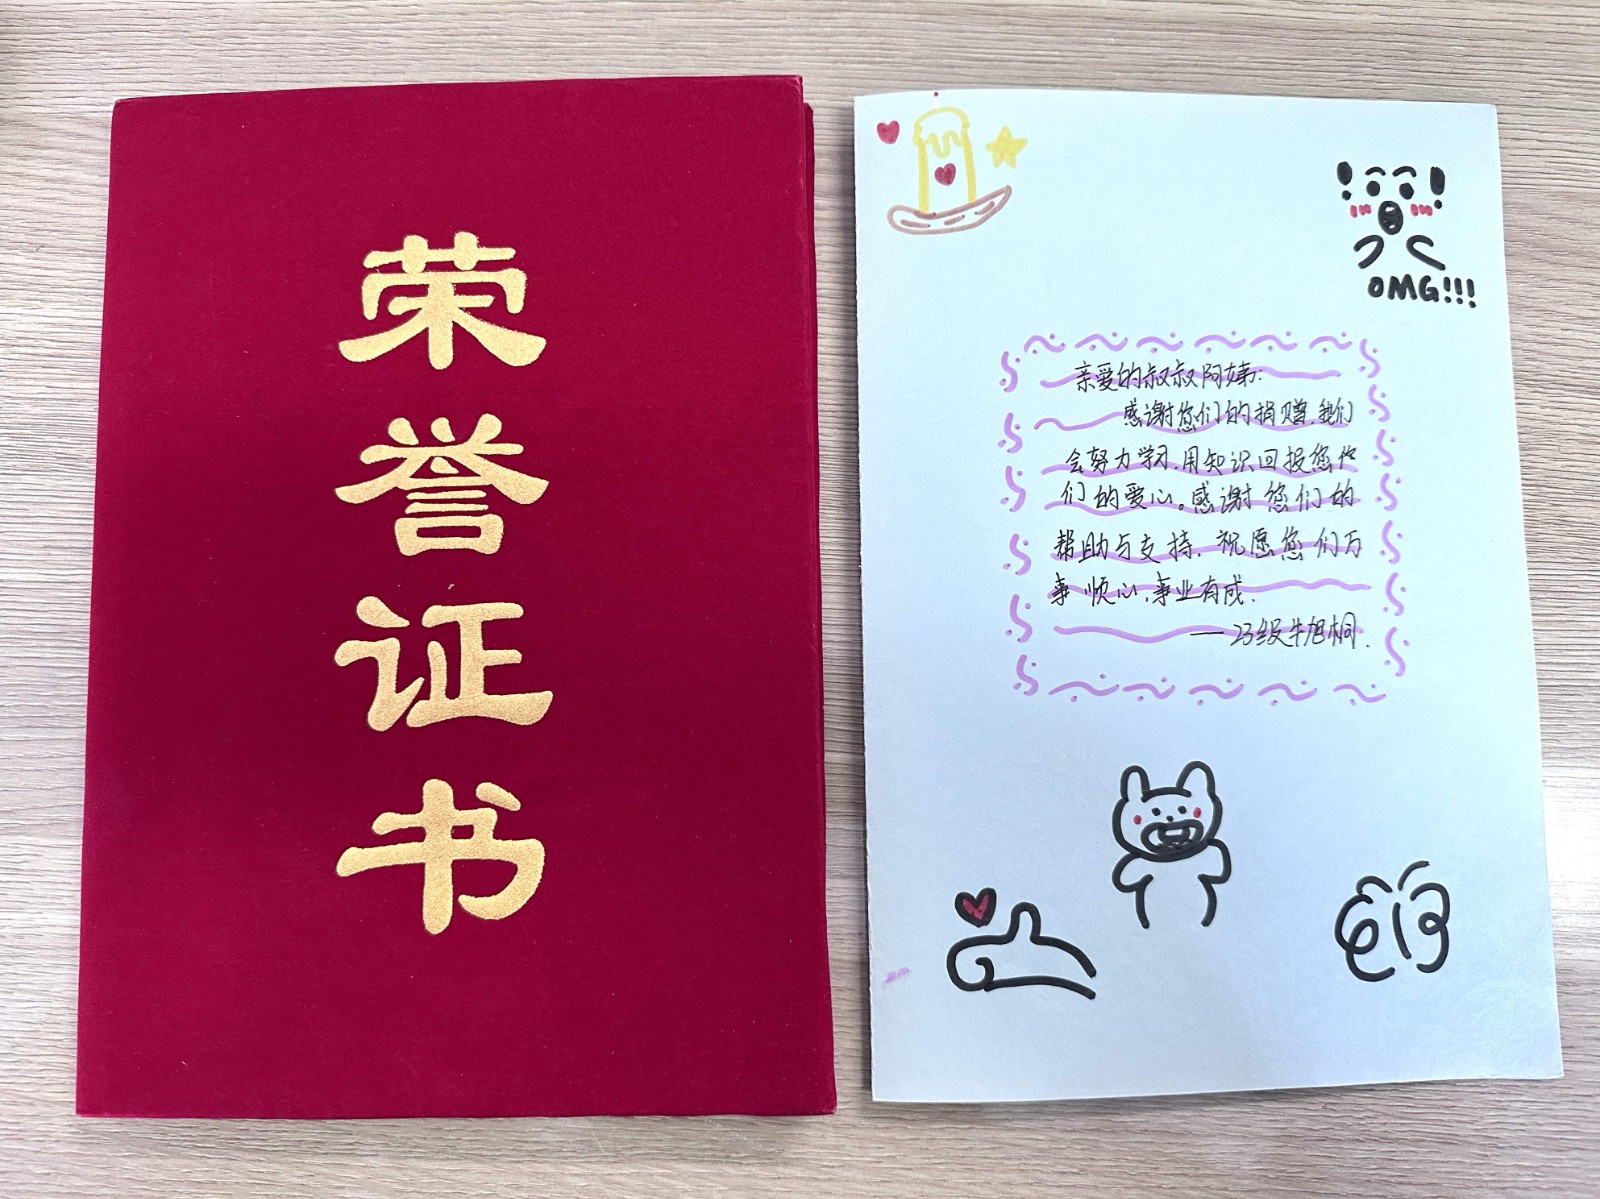 荣
誉
证
书
OMG!!!
亲爱的叔叔阿姨:
感谢您们的捐赠,我们
会努力学习,用知识回报您们
们的爱心。感谢您们的
帮助与支持,祝愿您们万
事顺心,事业有成.
——23级牛旭桐.